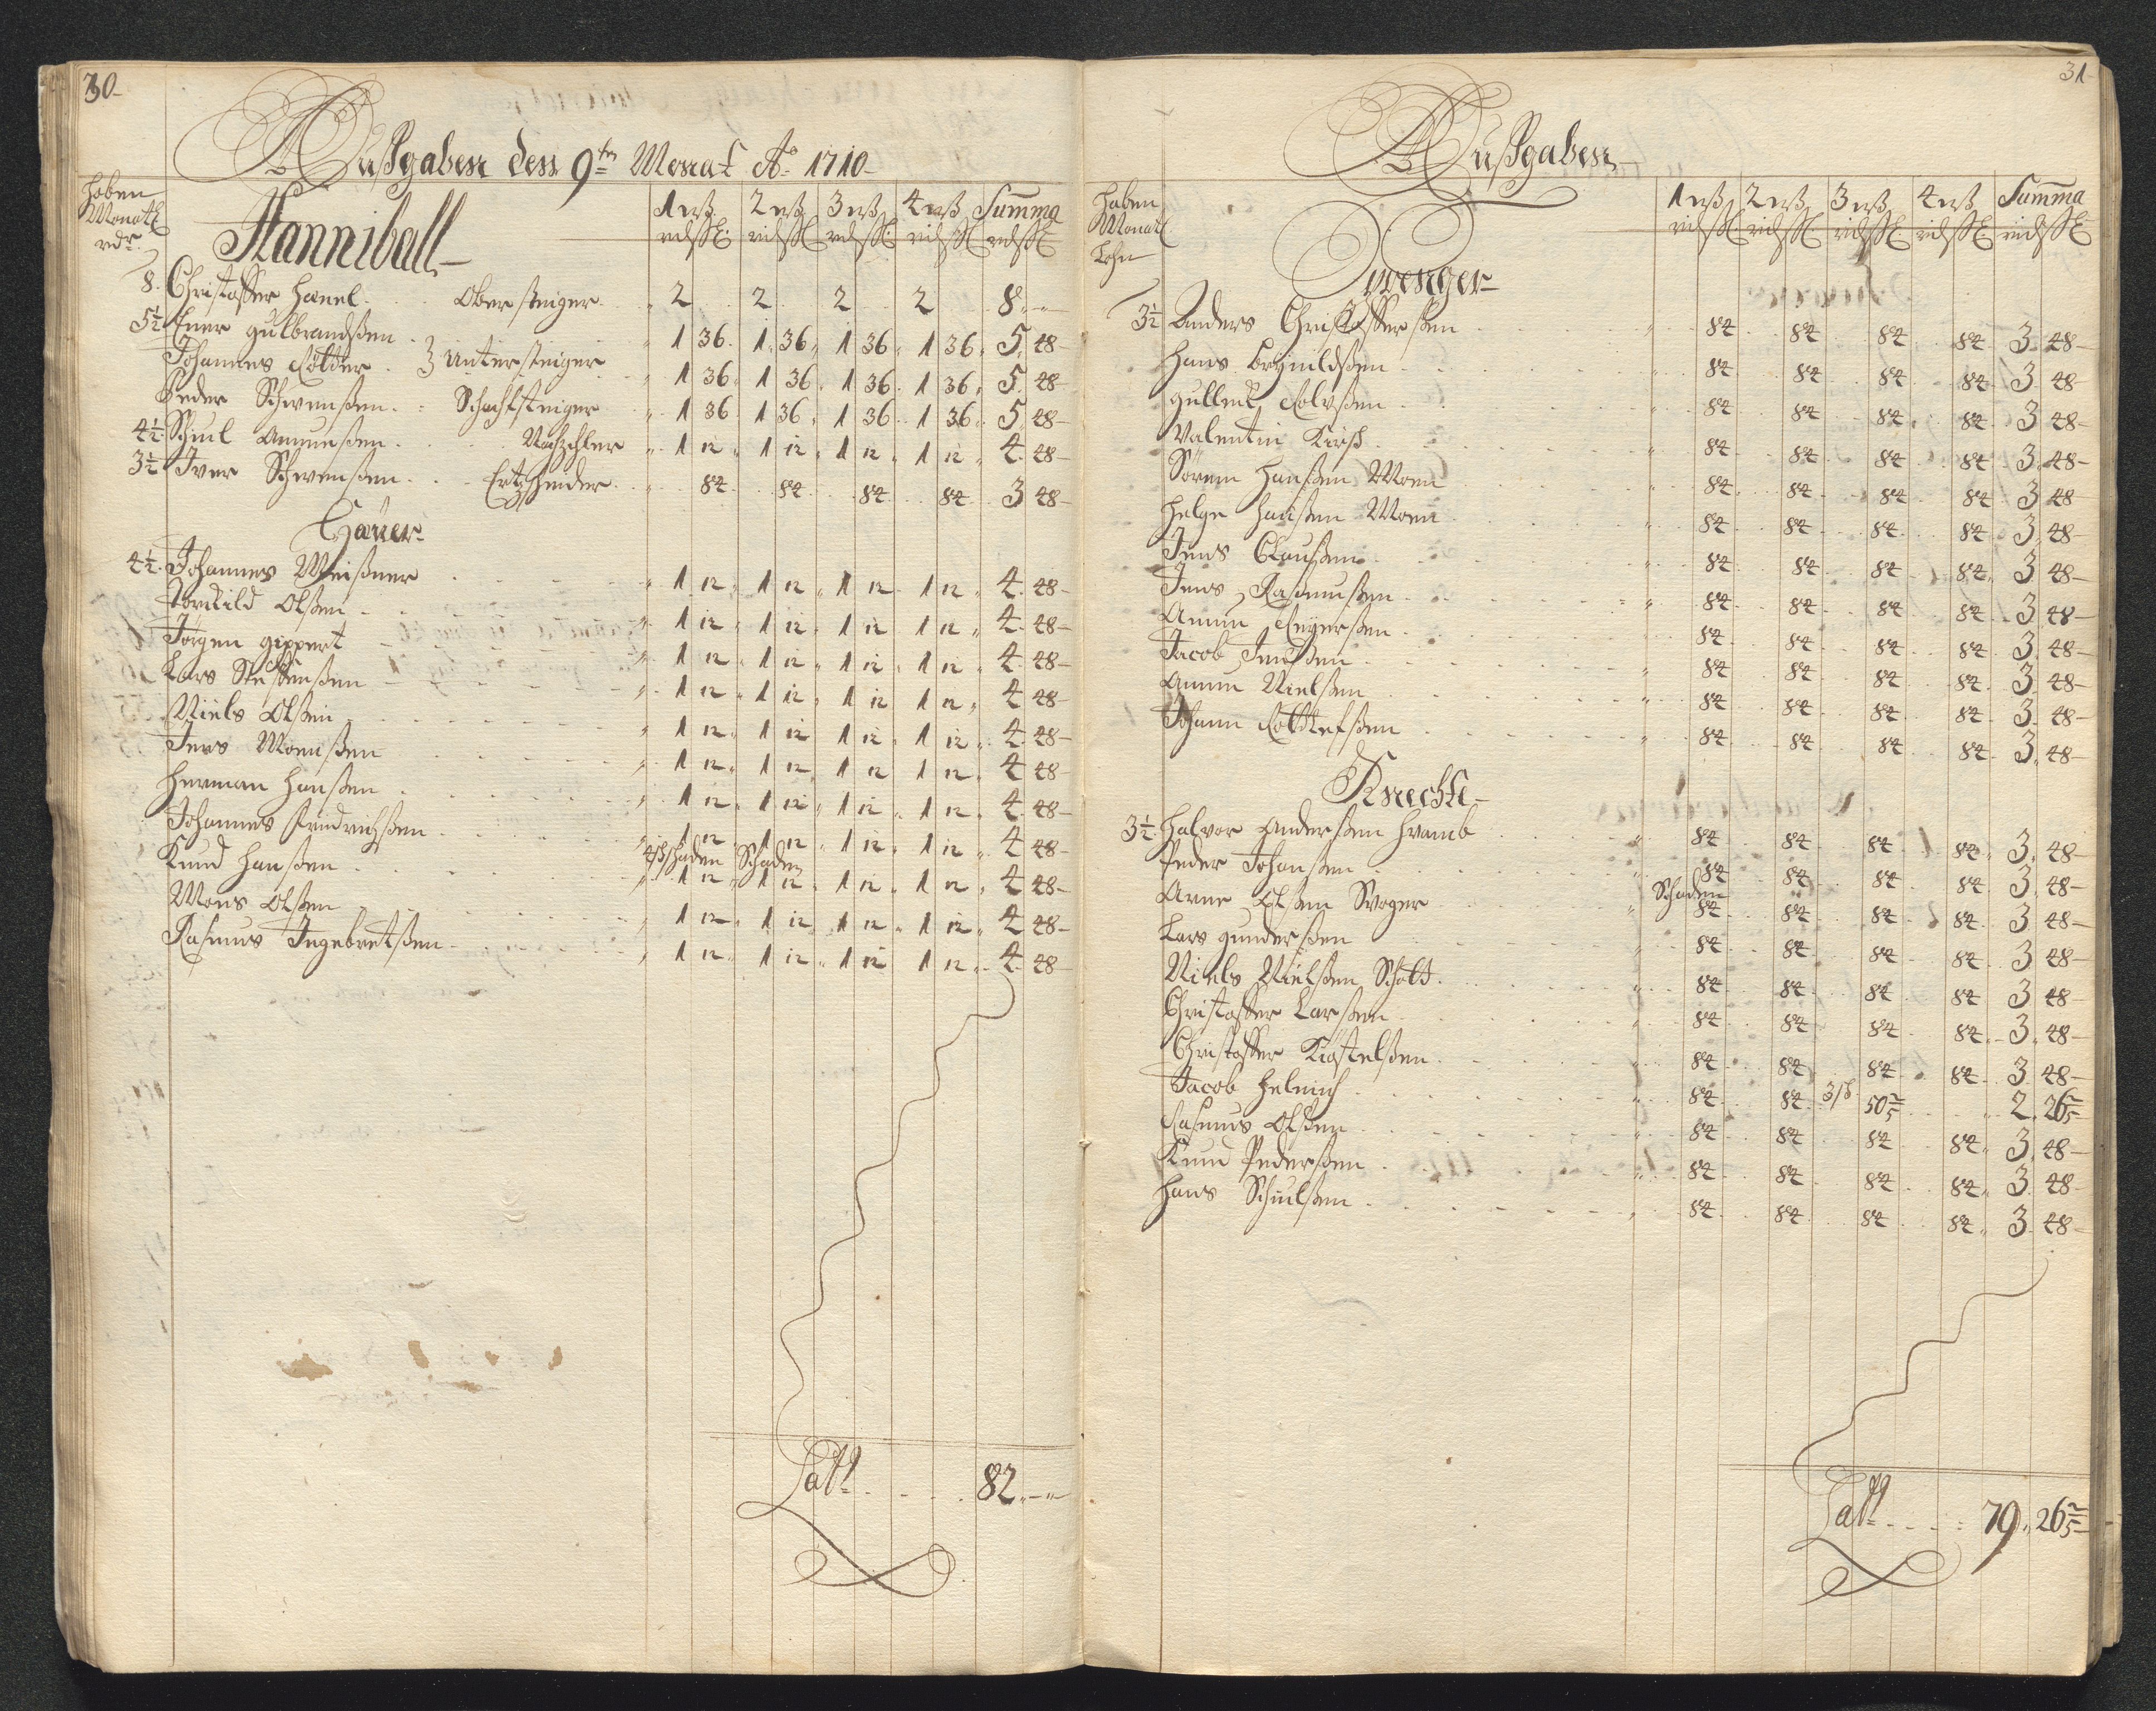 30
Außgaben dess 9ten Monat Ao 1710
haben Monatl rdr.
Hanniball
1 wß 2 wß 3 wß 4 wß Summa
rdß rdß rdß rdß rdß
8. Christoffer Hanel . . Obersteiger . 2 2 2 2 8 " "
5½ Ener Gulbrandßen . 1 36 1 36 1 36 1 36 5 48
Johannes Cölder . } Untersteiger 1 36 1 36 1 36 1 36 5 48
Peder Schwenßen . Schachtsteiger 1 36 1 36 1 36 1 36 5 48
4½ Schiul Amunßen . Nachzehler 1 12 1 12 1 12 1 12 4 48
3½ Iver Schwenßen . . Ertzscheider . 84 84 84 84 3 48
Häuer
4½ Johannes Meißner 1 12 1 12 1 12 1 12 4 48
Torkild Olßen 1 12 1 12 1 12 1 12 4 48
Jörgen Gippert 1 12 1 12 1 12 1 12 4 48
Lars Steffenßen 1 12 1 12 1 12 1 12 4 48
Niels Olßen 1 12 1 12 1 12 1 12 4 48
Jens Monßen 1 12 1 12 1 12 1 12 4 48
Herman Hanßen 1 12 1 12 1 12 1 12 4 48
Johannes Fridrichßen 1 12 1 12 1 12 1 12 4 48
4ß schaden Schaden
Knud Hanßen 1 12 1 12 1 12 1 12 4 48
Mons Olßen 1 12 1 12 1 12 1 12 4 48
Rasmus Ingebretßen 1 12 1 12 1 12 1 12 4 48
Latt . . . . 82 " "
31
Außgaben
haben Monatl Lohn
1 wß 2 wß 3 wß 4 wß Summa
rdß rdß rdß rdß rdß
Zwenger
3½ Anders Christofferßen 84 84 84 84 3 48
Hans Brynildßen 84 84 84 84 3 48
Gullick Rolvßen 84 84 84 84 3 48
Valentin Kirsch 84 84 84 84 3 48
Sören Hanßen Moen 84 84 84 84 3 48
Helge Hanßen Moen 84 84 84 84 3 48
Jens Claußen 84 84 84 84 3 48
Jens Rasmußen 84 84 84 84 3 48
Amun Reyerßen 84 84 84 84 3 48
Jacob Jenßen 84 84 84 84 3 48
Amun Nielßen 84 84 84 84 3 48
Johann 84 84 84 84 3 48
Knechte
3½ Halvor Anderßen Hvamb 84 84 84 84 3 48
Peder Johanßen 84 84 84 84 3 48
Schaden
Arne Olßen Svoger 84 84 84 84 3 48
Lars Gunderßen 84 84 84 84 3 48
Niels Nielßen Schott 84 84 84 84 3 48
Christoffer Larßen 84 84 84 84 3 48
Christoffer Kiostelßen 84 84 84 84 3 48
Jacob Helmich 84 84 3ß 50 2/5 2 26 2/5
Rasmus Olßen 84 84 84 84 3 48
Knud Pederßen 84 84 84 84 3 48
Hans Schiulßen 84 84 84 84 3 48
Latt . . . . 79 26 2/5